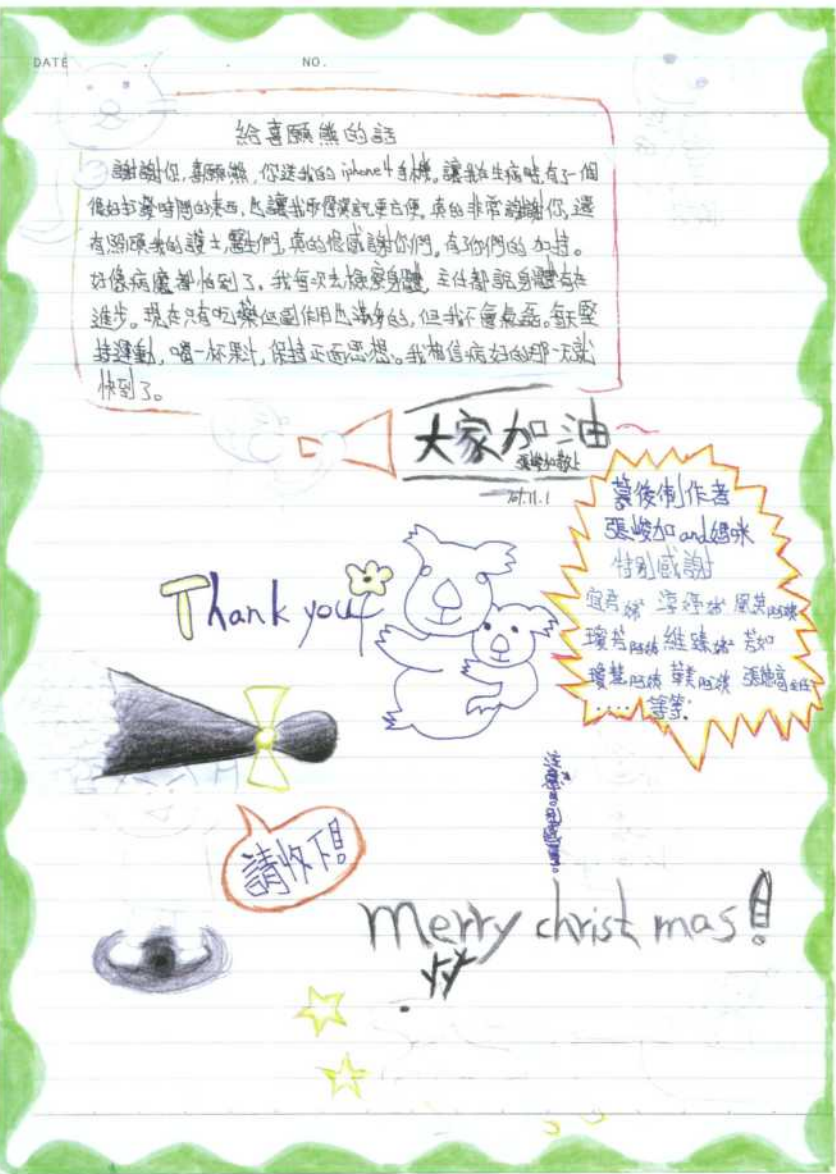 DATE . . NO.
給喜願熊的話
謝謝你,喜願熊,你送我的iphone4手機。讓我在生病時,有了一個
很好打發時間的東西,也讓我 更方便。真的非常謝謝你,還
有照顧我的護士,醫生們,真的很感謝你們,有了你們的加持。
好像病魔都怕到了,我每次去檢察身體,主任都說身體有在
進步。現在只有吃藥但副作用也滿多的,但我不會氣餒。每天堅
持運動,喝一杯果汁,保持正面思想。我相信病好的那一天就
快到了。
大家加油~
張峻加敬上
101.11.1
幕後制作者
張峻加and媽咪
特別感謝
Thank you
瓊芳阿姨 芳如
阿姨
....等等:
請收下!
merry christmas!